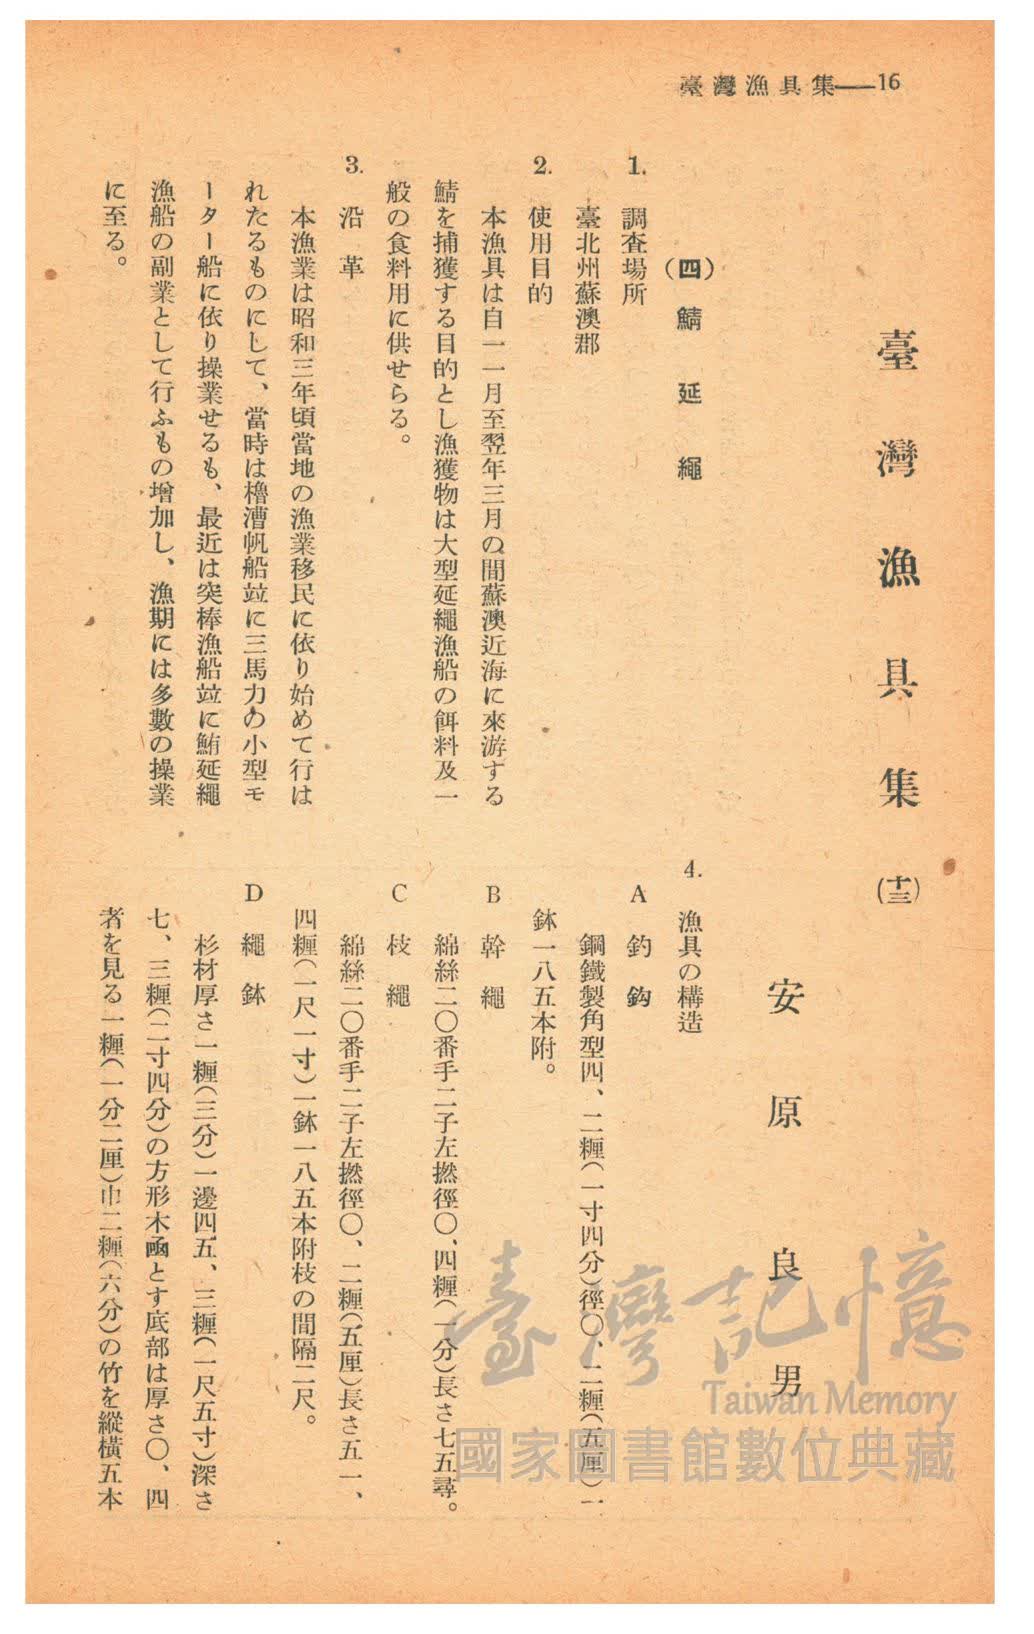 臺灣漁具集——16
臺灣漁具集(十三)
安原良男
(四) 鯖延繩
1. 調査場所
臺北州蘇澳郡
2. 使用目的
本漁具は自一一月至翌年三月の間蘇澳近海に來游する
鯖を捕獲する目的とし漁獲物は大型延繩漁船の餌料及一
般の食料用に供せらる。
3. 沿革
本漁業は昭和三年頃當地の漁業移民に依り始めて行は
れたるものにして、當時は櫓漕帆船竝に三馬力の小型モ
ーター船に依り操業せるも、最近は突棒漁船竝に鮪延繩
漁船の副業として行ふもの増加し、漁期には多數の操業
に至る。
4. 漁具の構造
A 釣鈎
鋼鐵製角型四、二糎(一寸四分)徑〇、二糎(五厘)一
鉢一八五本附。
B 幹繩
綿絲二〇番手二子左撚徑〇、四糎(一分)長さ七五尋。
C 枝繩
綿絲二〇番手二子左撚徑〇、二糎(五厘)長さ五一、
四糎(一尺一寸)一鉢一八五本附枝の間隔二尺。
D 繩鉢
杉材厚さ一糎(三分)一邊四五、三糎(一尺五寸)深さ
七、三糎(二寸四分)の方形木凾とす底部は厚さ〇、四
者を見る一糎(一分二厘)巾二糎(六分)の竹を縱横五本
臺灣記憶
Taiwan Memory
國家圖書館數位典藏